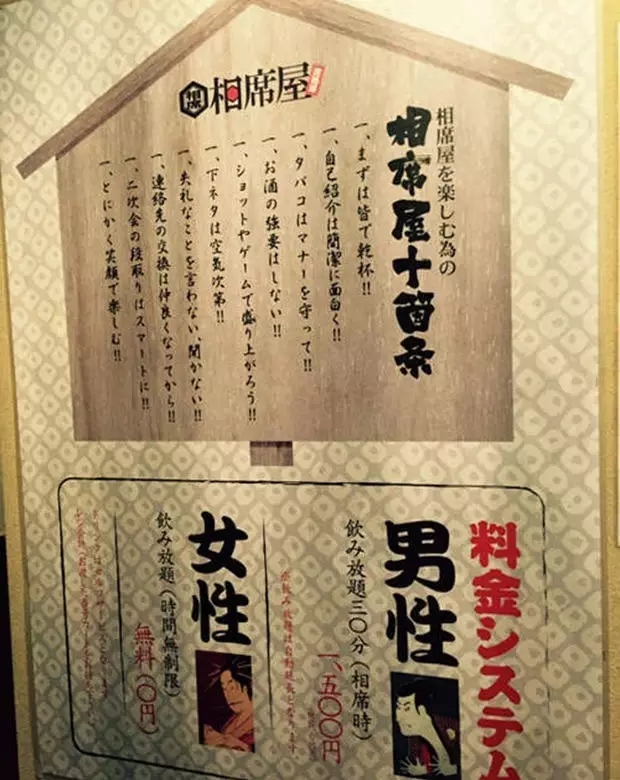 相席屋
相席屋を楽しむ為の
相席屋十箇条
一、まずは皆で乾杯!!
一、自己紹介は簡潔に面白く!!
一、タバコはマナーを守って!!
一、お酒の強要はしない!!
一、ショットやゲームで盛り上がろう!!
一、下ネタは空気次第!!
一、失礼なことを言わない、聞かない!!
一、連絡先の交換は仲良くなってから!!
一、二次会の段取りはスマートに!!
一、とにかく笑顔で楽しむ!!
料金システム
男性
飲み放題三〇分(相席時)
一、五〇〇円
※飲み放題は自動延長となります
女性
飲み放題(時間無制限)
無料(〇円)